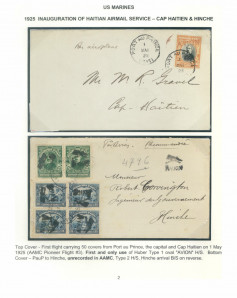 US MARINES
1925 INAUGURATION OF HAITIAN AIRMAIL SERVICE – CAP HAITIEN & HINCHE
By aeroplane
PORT-AU-PRINCE
1
MAI
25
Mr. M. R. Gravel
Cap-Haitien
Monsieur
Robert Covington
Ingenieur du Gouvernement
Hinche
Top Cover – First flight carrying 50 covers from Port au Prince, the capital and Cap Haitien on 1 May
1925 (AAMC Pioneer Flight #3). First and only use of Haber Type 1 oval "AVION" H/S. Bottom
Cover – PauP to Hinche, unrecorded in AAMC, Type 2 H/S, Hinche arrival B/S on reverse.
2